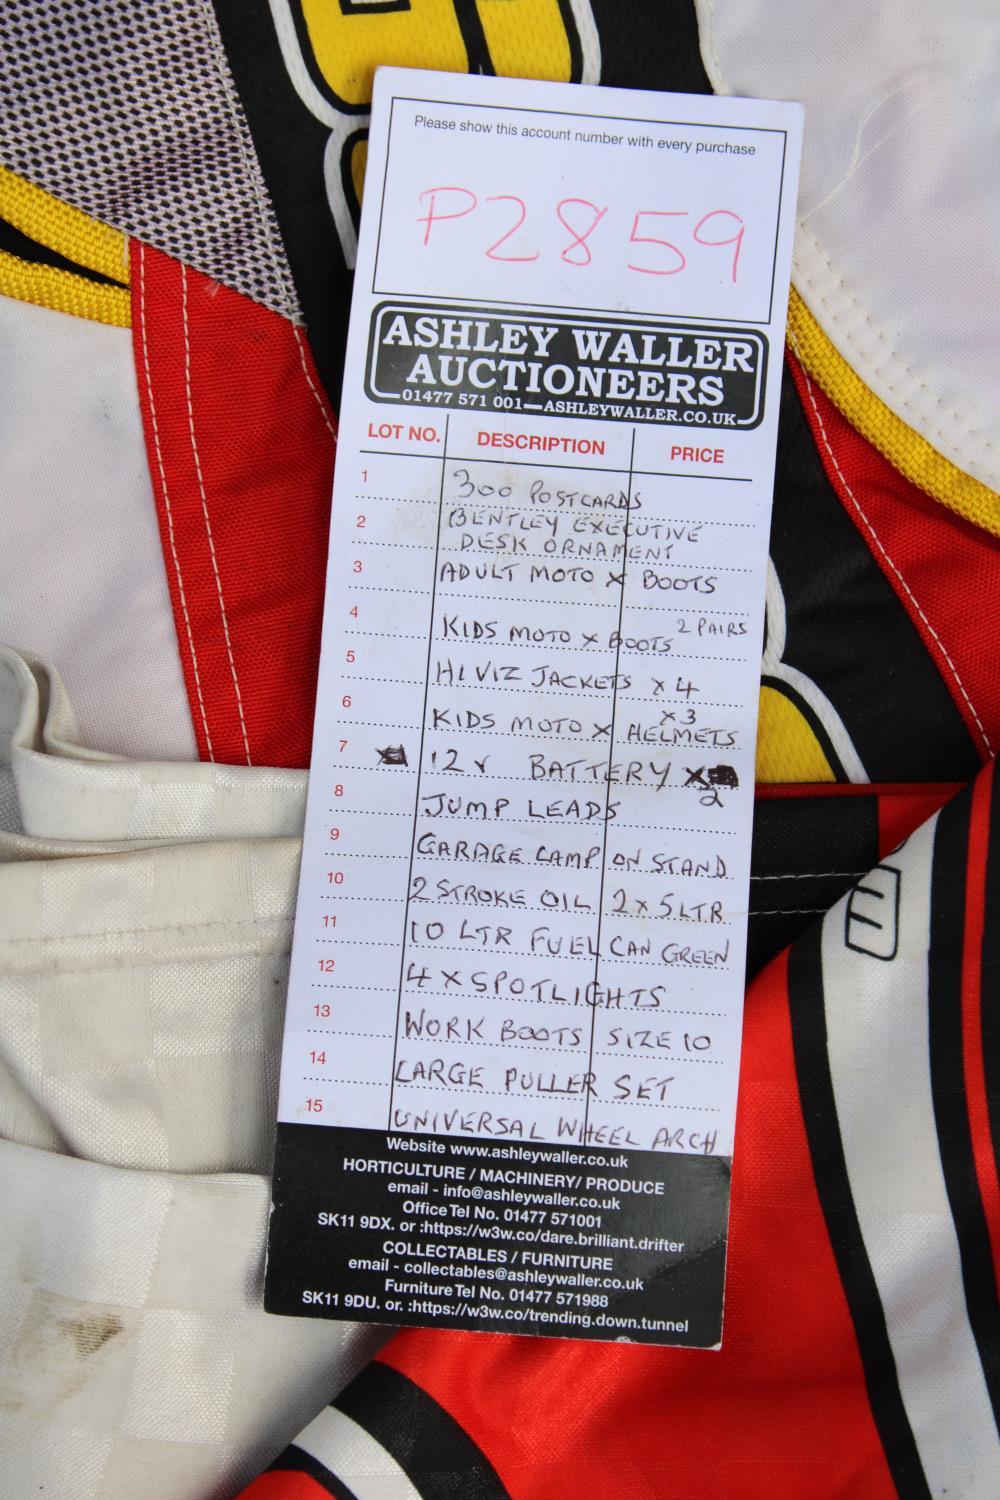 Please show this account number with every purchase
P2859
ASHLEY WALLER
AUCTIONEERS
01477 571 001—ASHLEYWALLER.CO.UK
LOT NO. DESCRIPTION PRICE
1 300 POSTCARDS
2 BENTLEY EXECUTIVE
DESK ORNAMENT
3 ADULT MOTO X BOOTS
4 KIDS MOTO X BOOTS 2 PAIRS
5 HI VIZ JACKETS X 4
6 KIDS MOTO X HELMETS X3
7 12V BATTERY X 2
8 JUMP LEADS
9 GARAGE LAMP ON STAND
10 2 STROKE OIL 2 X 5 LTR
11 10 LTR FUEL CAN GREEN
12 4 X SPOTLIGHTS
13 WORK BOOTS SIZE 10
14 LARGE PULLER SET
15 UNIVERSAL WHEEL ARCH
Website www.ashleywaller.co.uk
HORTICULTURE / MACHINERY/ PRODUCE
email - info@ashleywaller.co.uk
Office Tel No. 01477 571001
SK11 9DX. or :https://w3w.co/dare.brilliant.drifter
COLLECTABLES / FURNITURE
email - collectables@ashleywaller.co.uk
Furniture Tel No. 01477 571988
SK11 9DU. or. :https://w3w.co/trending.down.tunnel